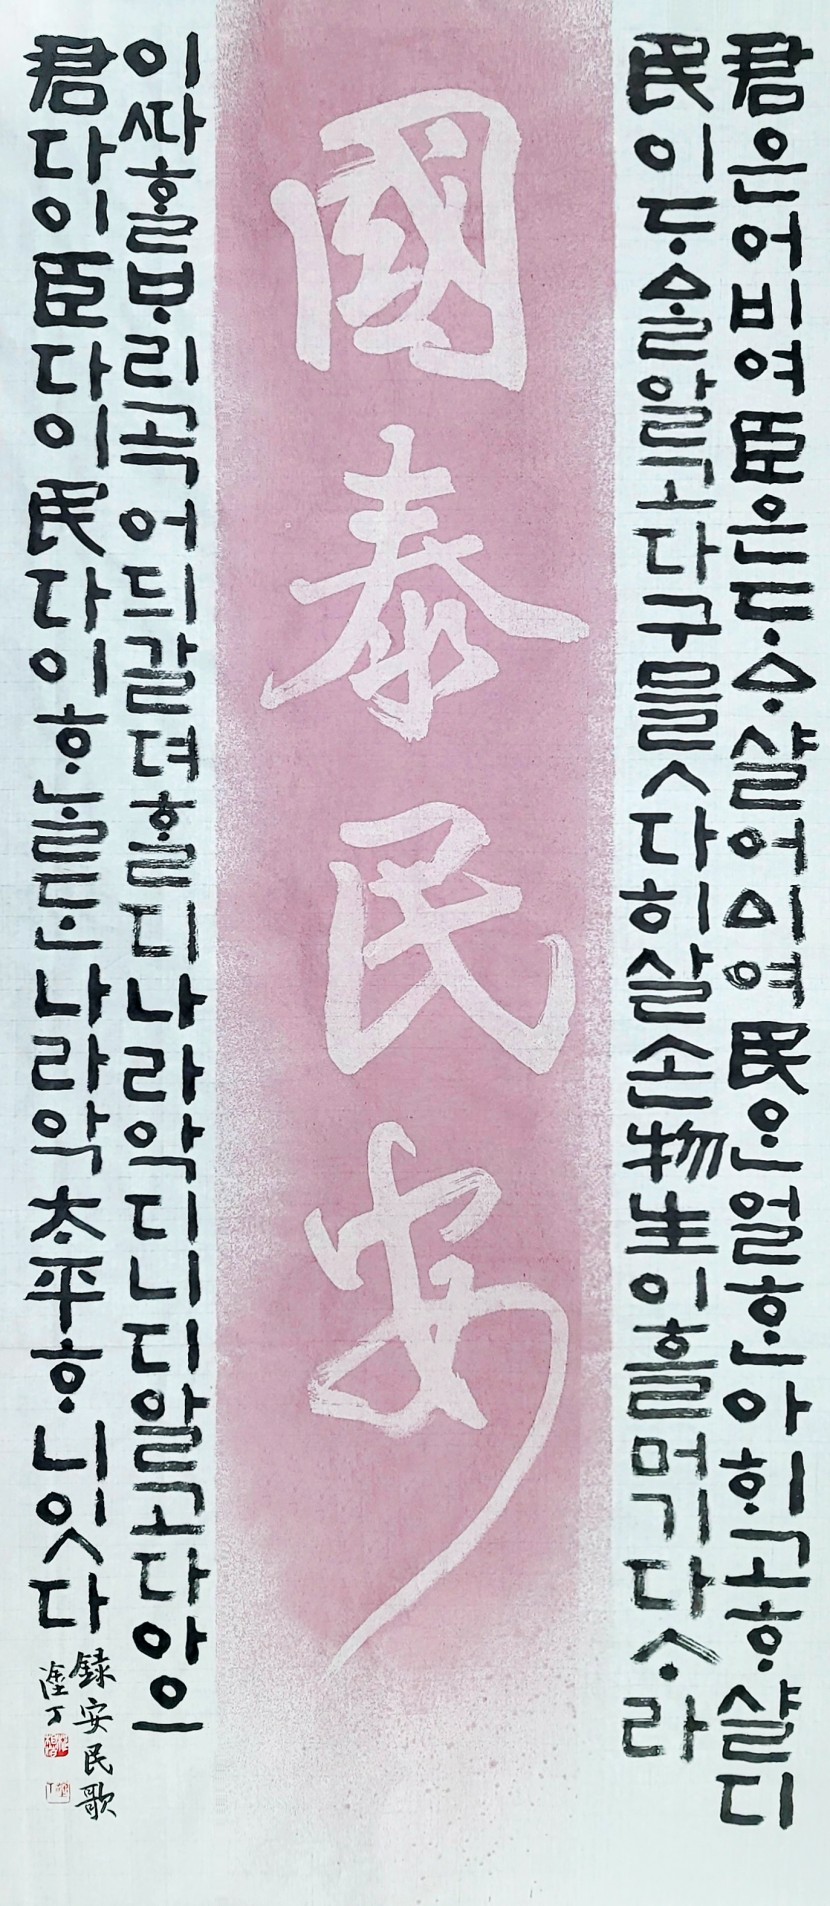 君은어비여臣은ᄃᆞᅀᆞ샬어ᅀᅵ여民ᄋᆞᆫ얼ᄒᆞᆫ아ᄒᆡ고ᄒᆞ샬디
民이ᄃᆞᅀᆞᆯ알고다구믈ㅅ다히살손物生이흘머기다ᅀᆞ라
國泰民安
이ᄯᅡᄒᆞᆯᄇᆞ리곡어듸갈뎌ᄒᆞᆯ디나라악디니디알고다아으
君다이臣다이民다이ᄒᆞᄂᆞᆯᄃᆞᆫ나라악太平ᄒᆞ니잇다
録安民歌
塗丁